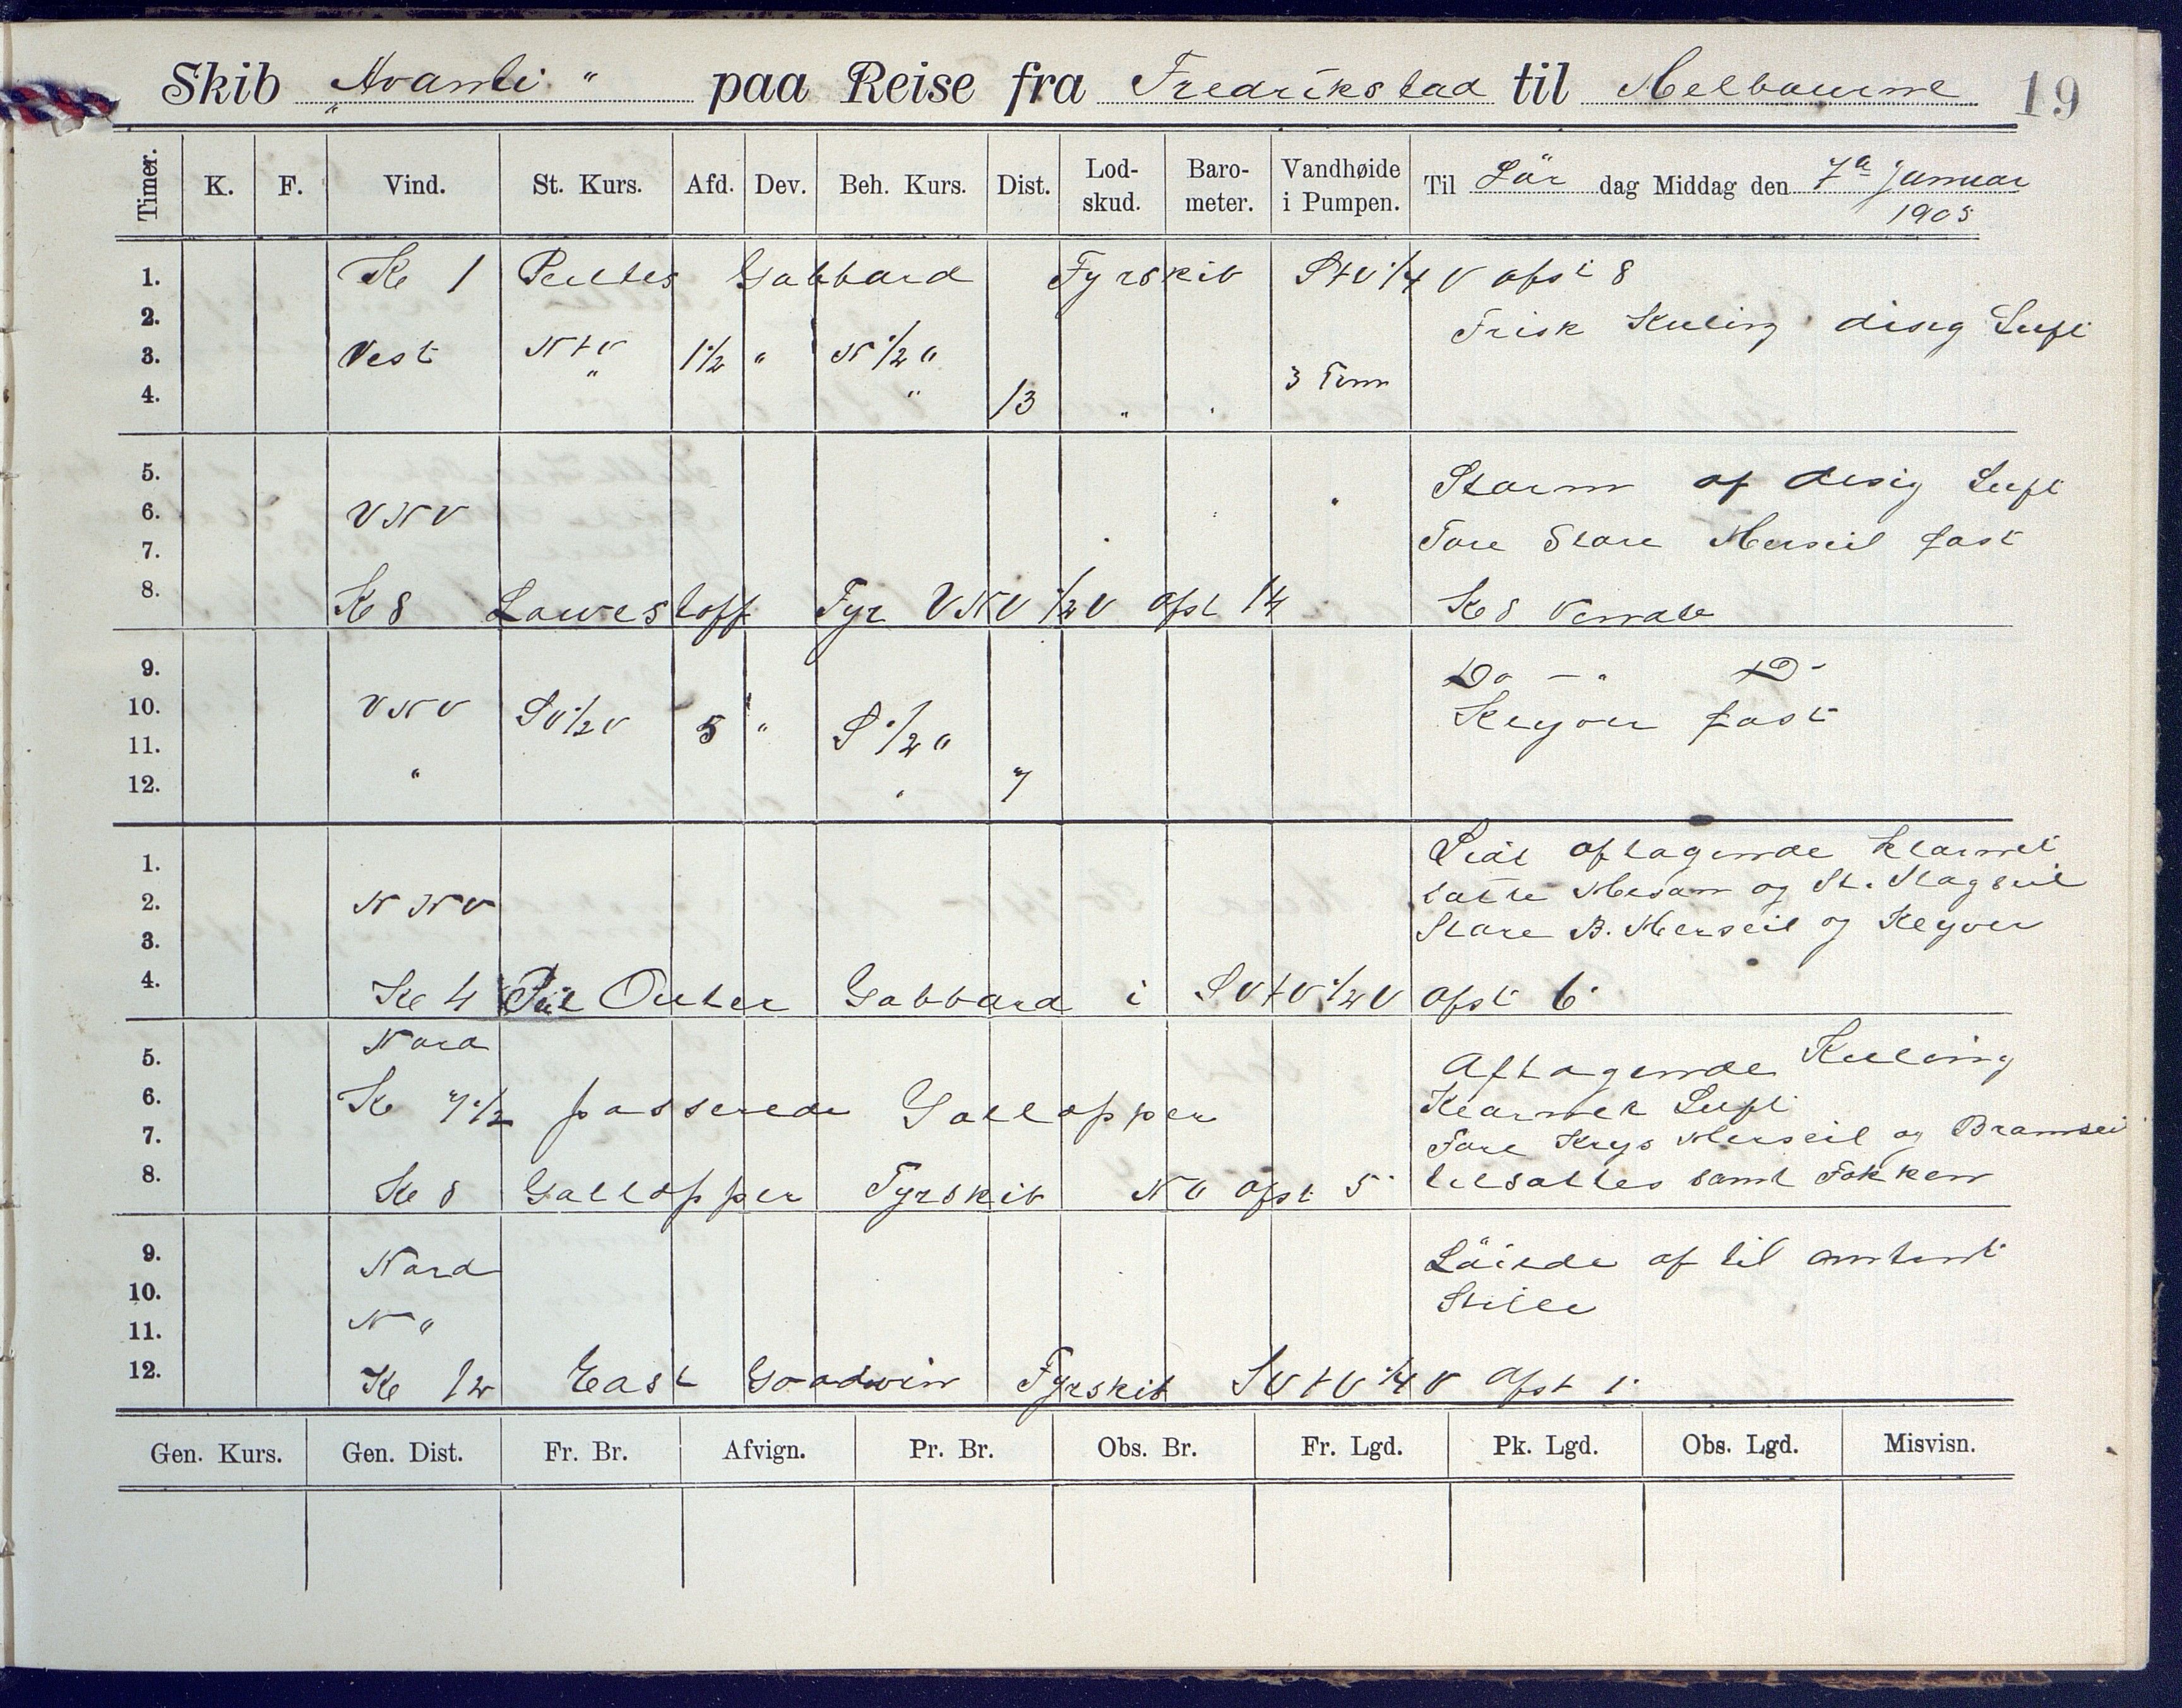 Skib „Avanti“ paa Reise fra Fredrikstad til Melbourne 19
Timer. K. F. Vind. St. Kurs. Afd. Dev. Beh. Kurs. Dist. Lod-skud. Baro-meter. Vandhøide i Pumpen. Til Lör dag Middag den 7de Januar 1905
1. Kl 1 Peiltes Gabbard Fyrskib StV 1/4 V afst 8
2. Frisk Kuling disig Luft
3. Vest NtV 1 1/2 " N 1/2 "
4. " " 13 " " 3 Tom
5. Storm af disig Luft
6. VNV "
7. Fore Store Merseil fast
8. Kl 8 Lowestoff Fyr VNV 1/2 V afst 14 Kl 8 Vendte
9. Do - " Do
10. VNV SV 1/2 V 5 " S 1/2 " Klyver fast
11.
12. " " 7
1. Vind aftagende klarnet
2. NNV satte Mesan og St. Stagseil
3. Store B. Merseil og Klyver
4. Kl 4 Peil Outer Gabbard i SVtV 1/2 V afst 6
5. Nord Aftagende Kuling
6. Kl 7 1/2 passerede Gallopper Klarnet Luft
7. Fore Krys Merseil og Bramsei
8. Kl 8 Gallopper Fyrskib NV afst 5 tilsattes samt Fokken
9. Nord Löiede af til omtrent
10. Stille
11. N "
12. Kl 12 East Goodwin Fyrskib SVtV 1/4 V afst 1
Gen. Kurs. Gen. Dist. Fr. Br. Afvign. Pr. Br. Obs. Br. Fr. Lgd. Pk. Lgd. Obs. Lgd. Misvisn.